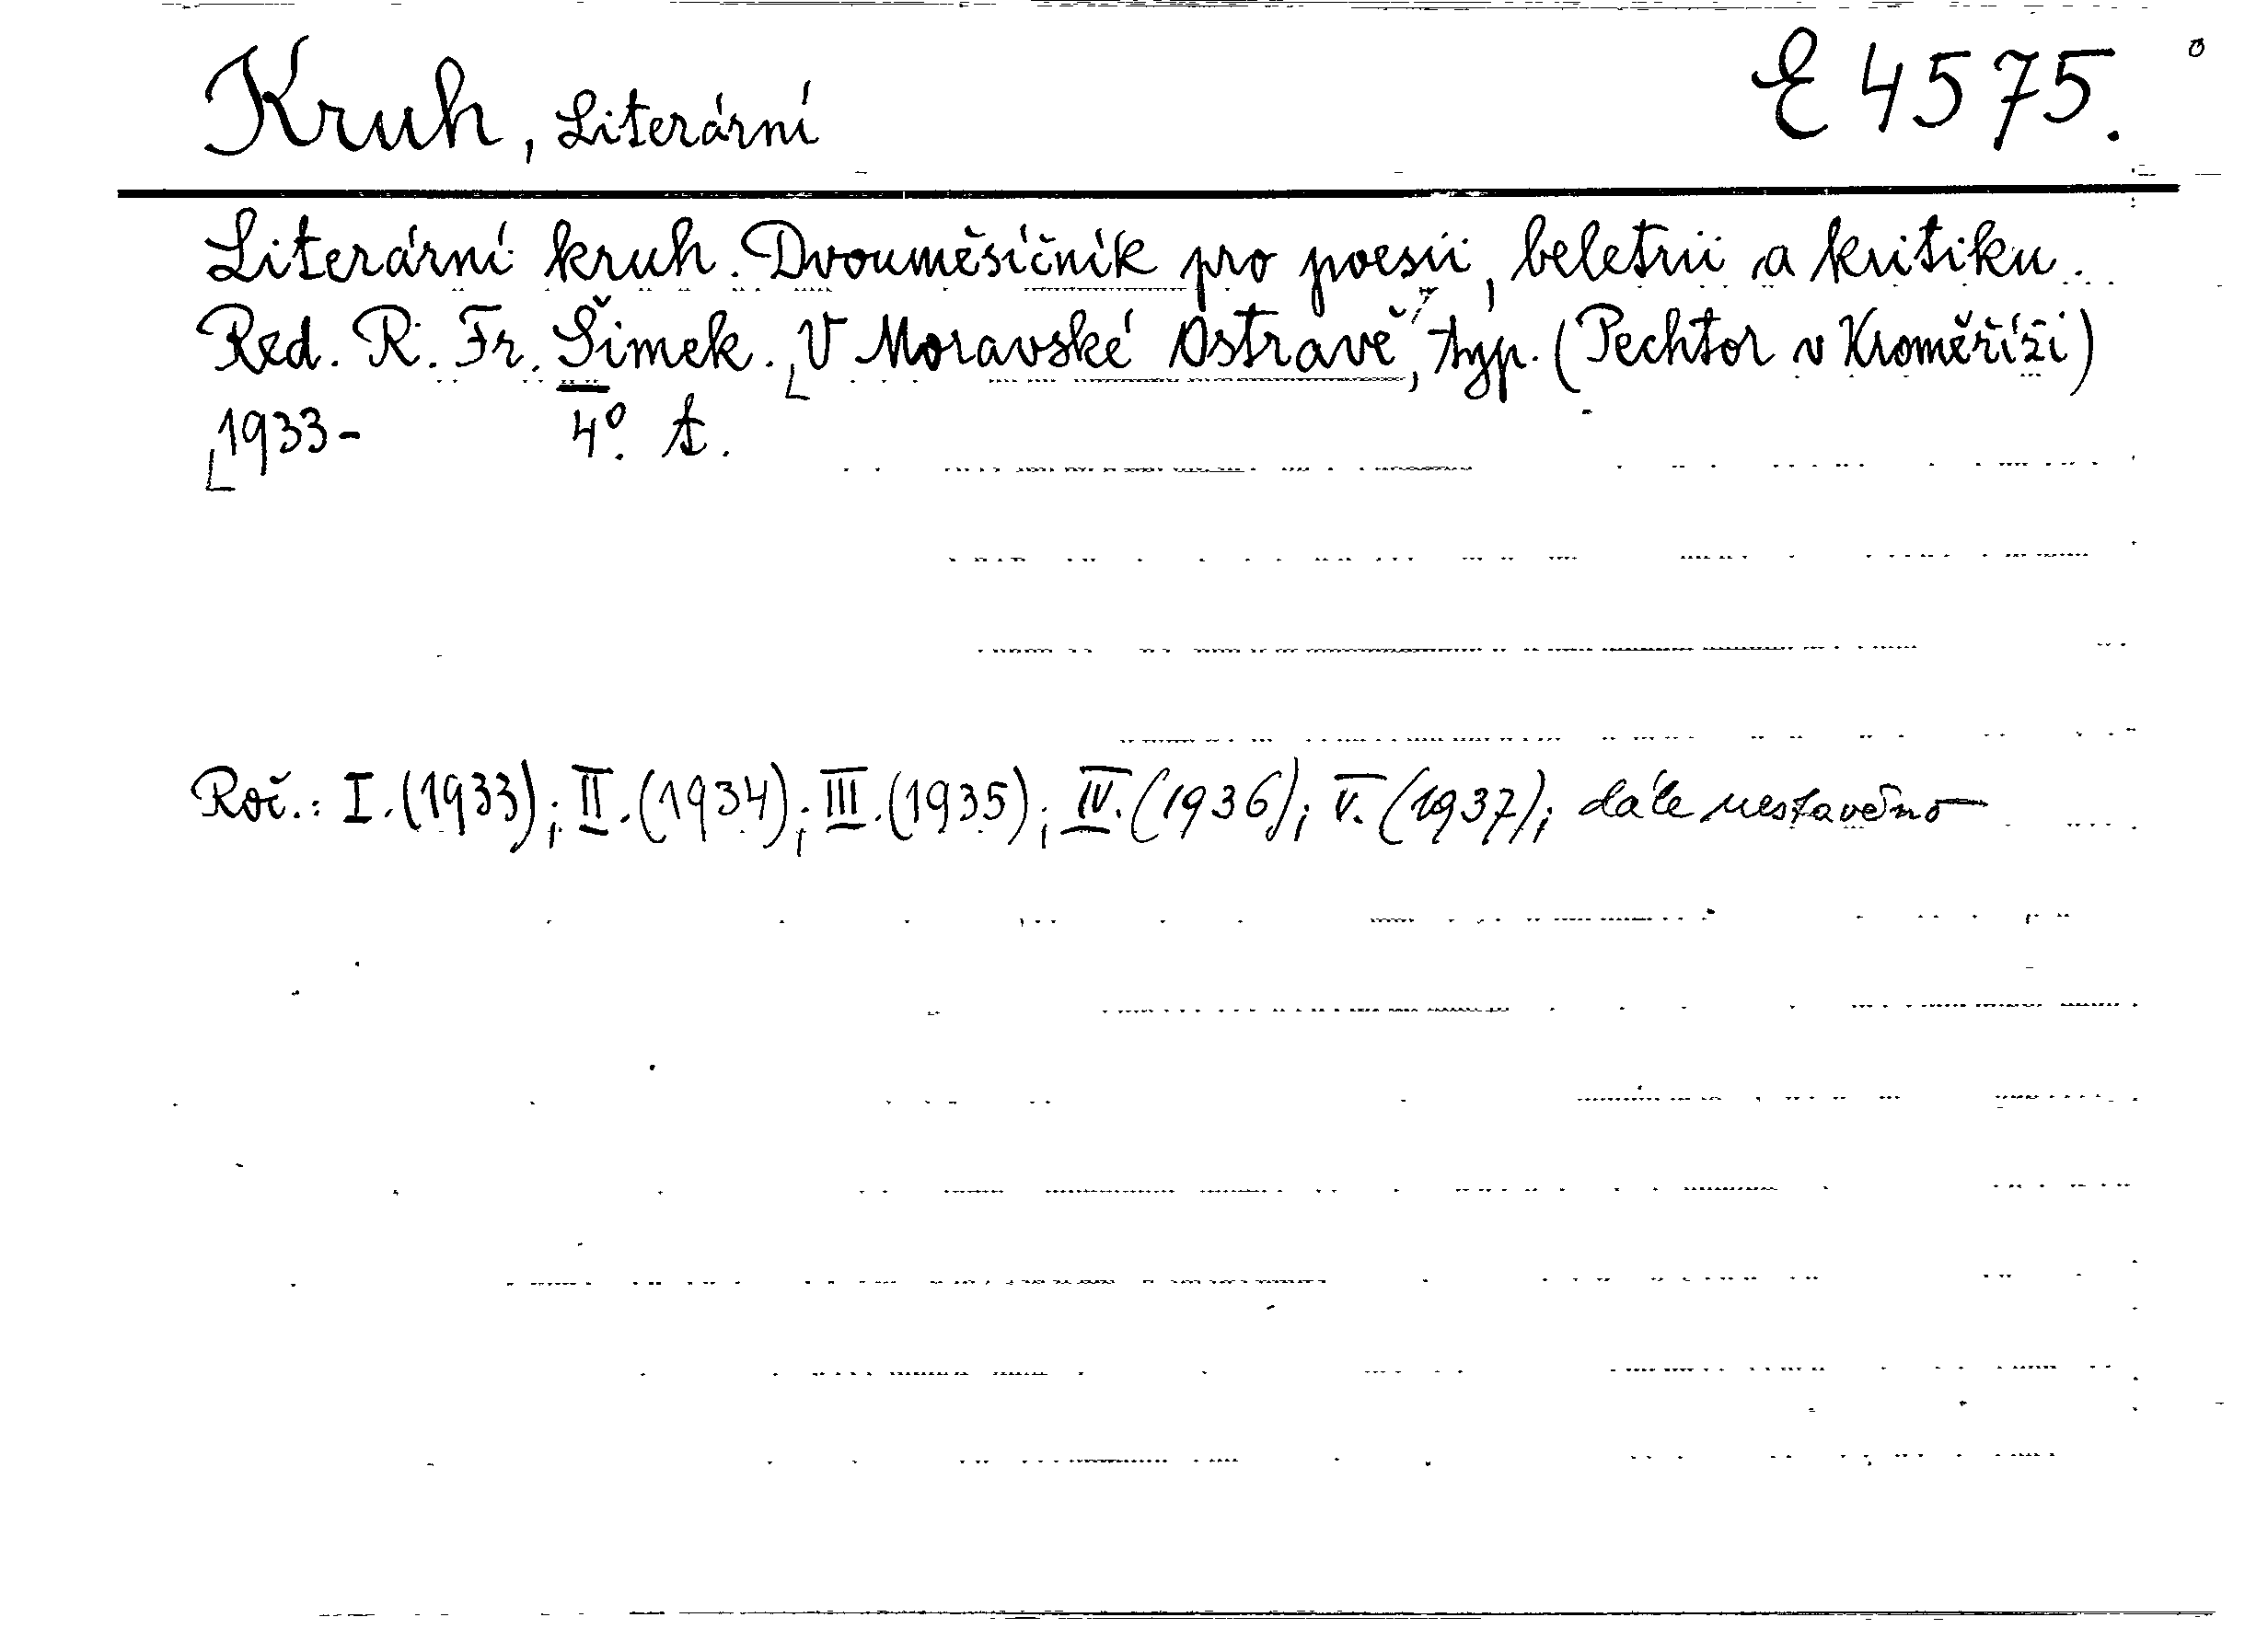 Kruh, Literární E 4575.
Literární kruh. Dvouměsíčník pro poesii, beletrii a kritiku.
Red. R. Fr. Šimek. V Moravské Ostravě, typ. (Pechtor v Kroměříži)
1933- 4º. t.
Roč.: I. (1933); II. (1934); III. (1935); IV. (1936); V. (1937); dále nestavěno